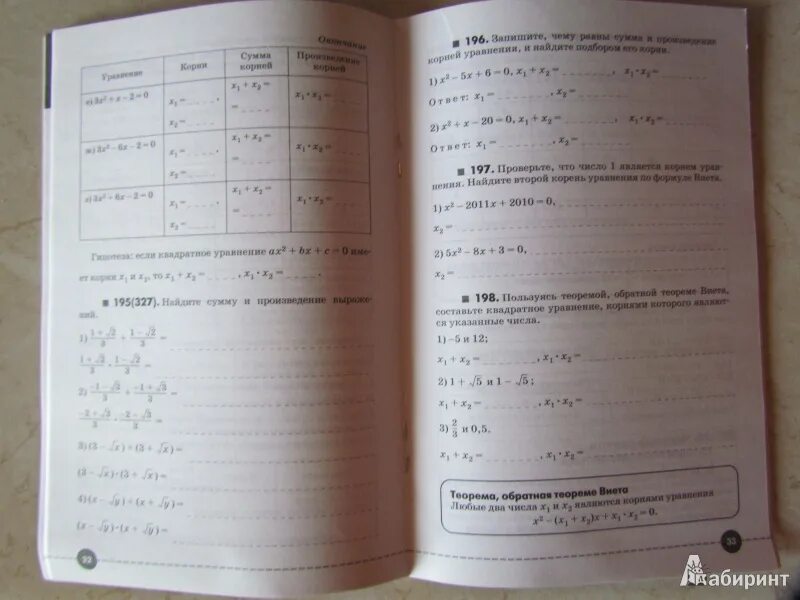 Окончание
Уравнение Корни Сумма корней Произведение корней
е) 3x² + x − 2 = 0 x₁ = x₂ = x₁ + x₂ = = x₁ · x₂ =
ж) 3x² − 6x − 2 = 0 x₁ = x₂ = x₁ + x₂ = = x₁ · x₂ =
з) 3x² + 6x − 2 = 0 x₁ = x₂ = x₁ + x₂ = = x₁ · x₂ =
Гипотеза: если квадратное уравнение ax² + bx + c = 0 име-
ет корни x₁ и x₂, то x₁ + x₂ = , x₁ · x₂ = .
195(327). Найдите сумму и произведение выраже-
ний.
1) (1 + √2)/3 + (1 − √2)/3 =
(1 + √2)/3 · (1 − √2)/3 =
2) + =
(−2 + √3)/3 · (−2 − √3)/3 =
3) (3 − √x) + (3 + √x) =
(3 − √x) · (3 + √x) =
4) (x − √y) + (x + √y) =
(x − √y) · (x + √y) =
32
196. Запишите, чему равны сумма и произведение
корней уравнения, и найдите подбором его корни.
1) x² − 5x + 6 = 0, x₁ + x₂ = , x₁ · x₂ =
Ответ: x₁ = , x₂ =
2) x² + x − 20 = 0, x₁ + x₂ = , x₁ · x₂ =
Ответ: x₁ = , x₂ =
197. Проверьте, что число 1 является корнем урав-
нения. Найдите второй корень уравнения по формуле Виета.
1) x² − 2011x + 2010 = 0,
x₂ =
2) 5x² − 8x + 3 = 0,
x₂ =
198. Пользуясь теоремой, обратной теореме Виета,
составьте квадратное уравнение, корнями которого являют-
ся указанные числа.
1) −5 и 12;
x₁ + x₂ = , x₁ · x₂ =
2) 1 + √5 и 1 − √5;
x₁ + x₂ = , x₁ · x₂ =
3) 2/3 и 0,5.
x₁ + x₂ = , x₁ · x₂ =
Теорема, обратная теореме Виета
Любые два числа x₁ и x₂ являются корнями уравнения
x² − (x₁ + x₂)x + x₁ · x₂ = 0.
33
Лабиринт